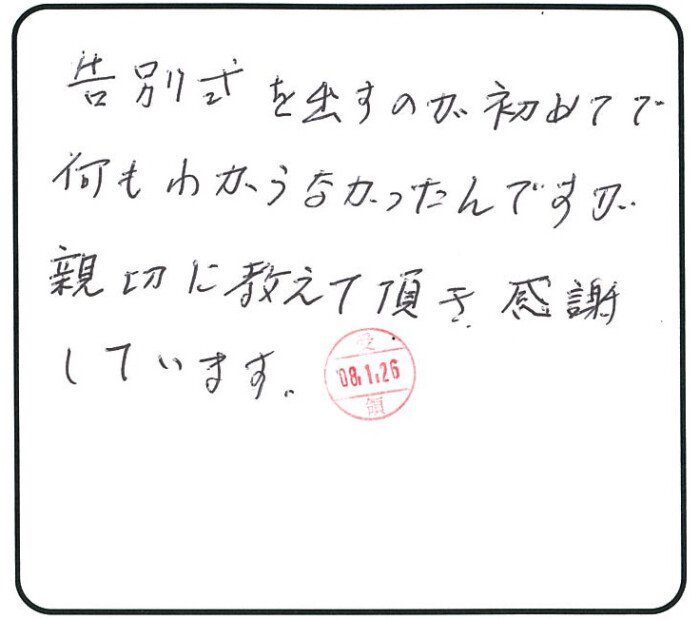 告別式を出すのが初めてで
何もわからなかったんですが
親切に教えて頂き感謝
しています。
受
'08.1.26
領